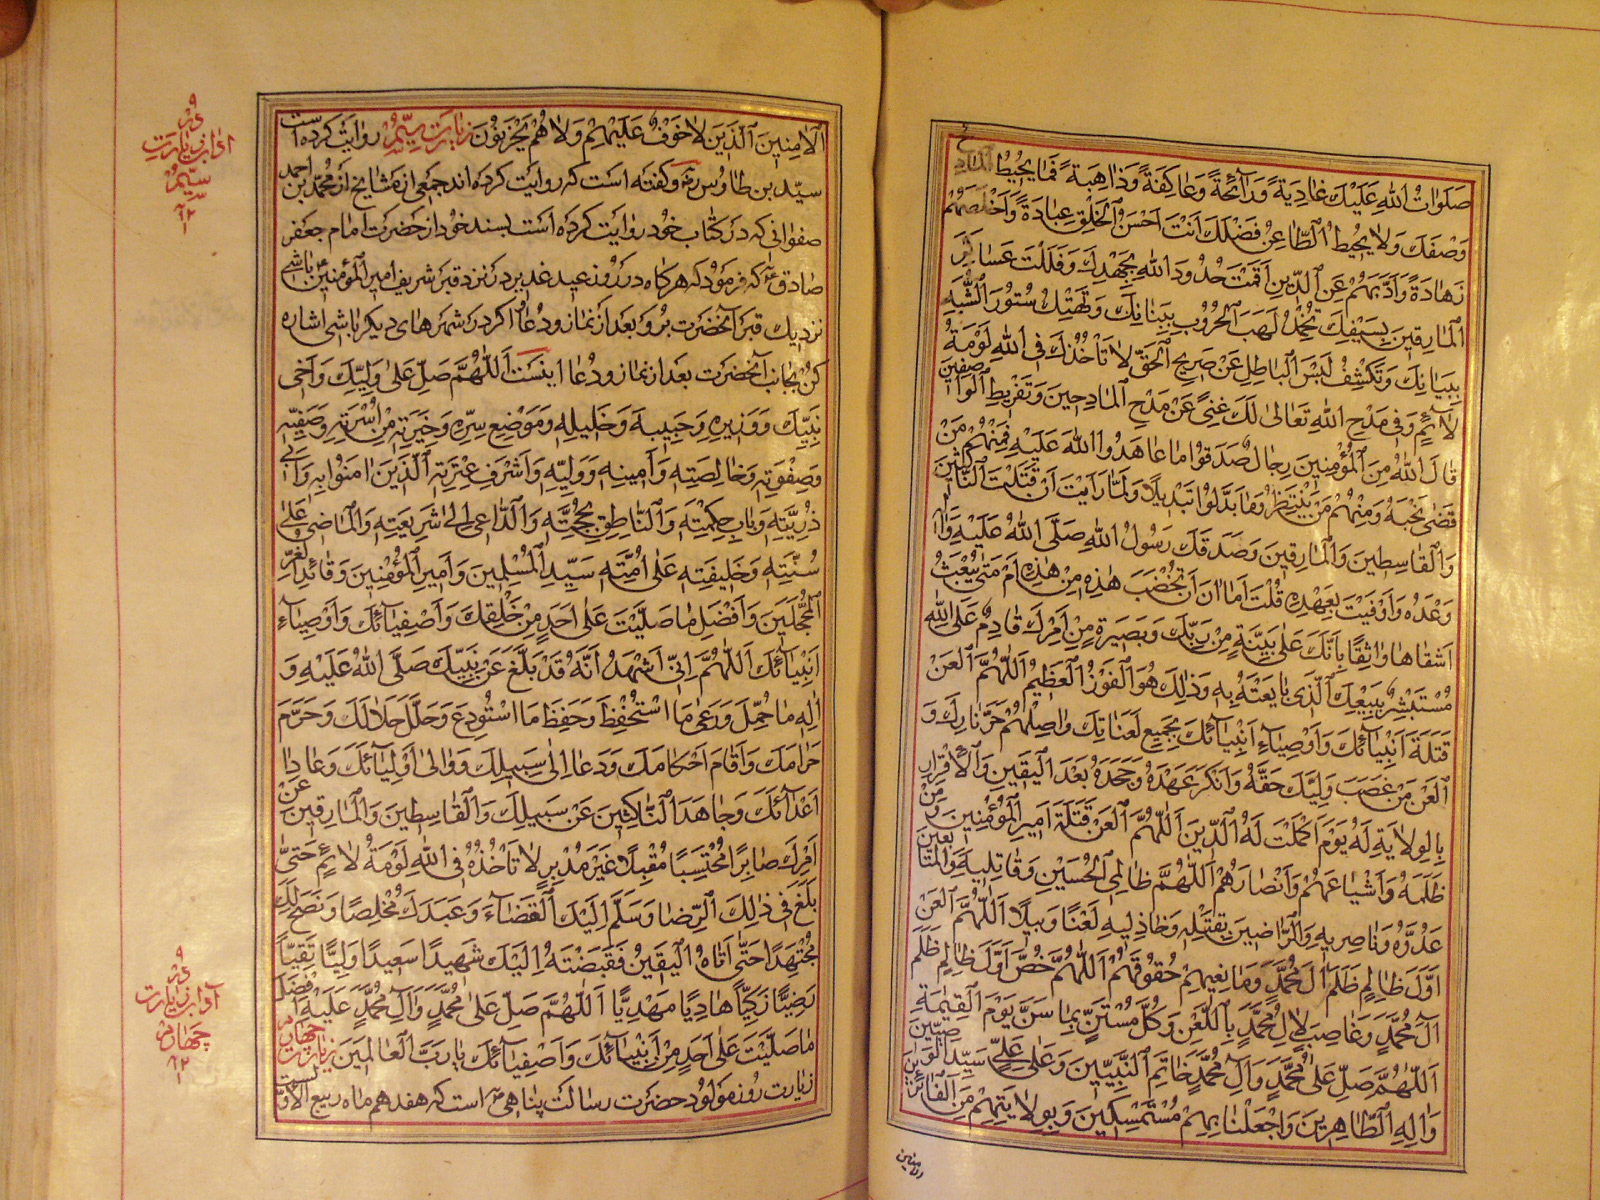 صَلَواتُ اللهِ عَلَيْكَ غادِيَةً وَرائِحَةً وَعاكِفَةً وَذاهِبَةً فَما يُحيطُ المادِحُ
وَصْفَكَ وَلا يُحيطُ الطّاعِنُ فَضْلَكَ اَنْتَ اَحْسَنُ الْخَلْقِ عِبادَةً وَاَخْلَصُهُمْ
زَهادَةً وَاَذَبُّهُمْ عَنِ الدّينِ اَقَمْتَ حُدُودَ اللهِ بِجُهْدِكَ وَفَلَلْتَ عَساكِرَ
الْمارِقينَ بِسَيْفِكَ تُخْمِدُ لَهَبَ الْحُرُوبِ بِبَنانِكَ وَتَهْتِكُ سُتُورَ الشُّبَهِ
بِبَيانِكَ وَتَكْشِفُ لَبْسَ الْباطِلِ عَنْ صَريحِ الْحَقِّ لا تَأْخُذُكَ فِي اللهِ لَوْمَةُ
لائِمٍ وَفي مَدْحِ اللهِ تَعالى لَكَ غِنىً عَنْ مَدْحِ الْمادِحينَ وَتَقْريظِ الْواصِفينَ
قالَ اللهُ مِنَ الْمُؤْمِنينَ رِجالٌ صَدَقُوا ما عاهَدُوا اللهَ عَلَيْهِ فَمِنْهُمْ مَنْ
قَضى نَحْبَهُ وَمِنْهُمْ مَنْ يَنْتَظِرُ وَما بَدَّلُوا تَبْديلًا وَلَمّا رَاَيْتَ اَنْ قَتَلْتَ النّاكِثينَ
وَالْقاسِطينَ وَالْمارِقينَ وَصَدَقَكَ رَسُولُ اللهِ صَلَّى اللهُ عَلَيْهِ وَآلِهِ
وَعْدَهُ وَاَوْفَيْتَ بِعَهْدِهِ قُلْتَ اَما انَ اَنْ تُخْضَبَ هذِهِ مِنْ هذِهِ اَمْ مَتى يُبْعَثُ
اَشْقاها واثِقًا بِاَنَّكَ عَلى بَيِّنَةٍ مِنْ رَبِّكَ وَبَصيرَةٍ مِنْ اَمْرِكَ قادِمٌ عَلَى اللهِ
مُسْتَبْشِرٌ بِبَيْعِكَ الَّذي بايَعْتَهُ بِهِ وَذلِكَ هُوَ الْفَوْزُ الْعَظيمُ اَللّهُمَّ الْعَنْ
قَتَلَةَ اَنْبِيائِكَ وَاَوْصِياءِ اَنْبِيائِكَ بِجَميعِ لَعَناتِكَ وَاَصْلِهِمْ حَرَّ نارِكَ وَ
الْعَنْ مَنْ غَصَبَ وَلِيَّكَ حَقَّهُ وَاَنْكَرَ عَهْدَهُ وَجَحَدَهُ بَعْدَ الْيَقينِ وَالْاِقْرارِ
بِالْوِلايَةِ لَهُ يَوْمَ اَكْمَلْتَ لَهُ الدّينَ اَللّهُمَّ الْعَنْ قَتَلَةَ اَميرِ الْمُؤْمِنينَ وَمَنْ
ظَلَمَهُ وَاَشْياعَهُمْ وَاَنْصارَهُمْ اَللّهُمَّ ظالِمِي الْحُسَيْنِ وَقاتِليهِ وَالْمُتابِعينَ
عَدُوَّهُ وَناصِريهِ وَالرّاضينَ بِقَتْلِهِ وَخاذِليهِ لَعْنًا وَبيلًا اَللّهُمَّ الْعَنْ
اَوَّلَ ظالِمٍ ظَلَمَ آلَ مُحَمَّدٍ وَمانِعيهِمْ حُقُوقَهُمْ اَللّهُمَّ خُصَّ اَوَّلَ ظالِمٍ ظَلَمَ
آلَ مُحَمَّدٍ وَغاصِبٍ لِآلِ مُحَمَّدٍ بِاللَّعْنِ وَكُلَّ مُسْتَنٍّ بِما سَنَّ يَوْمَ الْقِيمَةِ
اَللّهُمَّ صَلِّ عَلى مُحَمَّدٍ وَآلِ مُحَمَّدٍ خاتَمِ النَّبِيّينَ وَعَلى عَلِيٍّ سَيِّدِ الْوَصِيّينَ
وَالِهِ الطّاهِرينَ وَاجْعَلْنا بِهِمْ مُسْتَمْسِكينَ وَبِوِلايَتِهِمْ مِنَ الْفائِزينَ
الْامِنينَ الَّذينَ لا خَوْفٌ عَلَيْهِمْ وَلا هُمْ يَحْزَنُونَ زيارت سيّم روايت كرده است
سيّد بن طاوس ره وكفته است كه روايت كرده اند جمعى از مشايخ از محمّد بن احمد
صفوانى كه در كتاب خود روايت كرده است بسند خود از حضرت امام جعفر
صادق ع كه فرمود كه هركاه در روز عيد غدير در نزد قبر شريف امير المؤمنين باشى
نزديك قبر آنحضرت برو بعد از نماز ودعا واكر در شهرهاى ديكر باشى اشاره
كن بجانب آنحضرت بعد از نماز ودعا اينست اَللّهُمَّ صَلِّ عَلى وَلِيِّكَ وَاَخي
نَبِيِّكَ وَوَزيرِهِ وَحَبيبِهِ وَخَليلِهِ وَمَوْضِعِ سِرِّهِ وَخِيَرَتِهِ مِنْ اُسْرَتِهِ وَوَصِيِّهِ
وَصِفْوَتِهِ وَخالِصَتِهِ وَاَمينِهِ وَوَلِيِّهِ وَاَشْرَفِ عِتْرَتِهِ الَّذينَ امَنُوا بِهِ وَاَبي
ذُرِّيَّتِهِ وَبابِ حِكْمَتِهِ وَالنّاطِقِ بِحُجَّتِهِ وَالدّاعي اِلى شَريعَتِهِ وَالْماضي عَلى
سُنَّتِهِ وَخَليفَتِهِ عَلى اُمَّتِهِ سَيِّدِ الْمُسْلِمينَ وَاَميرِ الْمُؤْمِنينَ وَقائِدِ الْغُرِّ
الْمُحَجَّلينَ وَاَفْضَلِ ما صَلَّيْتَ عَلى اَحَدٍ مِنْ خَلْقِكَ وَاَصْفِيائِكَ وَاَوْصِياءِ
اَنْبِيائِكَ اَللّهُمَّ اِنّي اَشْهَدُ اَنَّهُ قَدْ بَلَّغَ عَنْ نَبِيِّكَ صَلَّى اللهُ عَلَيْهِ وَ
الِهِ ما حُمِّلَ وَرَعى مَا اسْتُحْفِظَ وَحَفِظَ مَا اسْتُودِعَ وَحَلَّلَ حَلالَكَ وَحَرَّمَ
حَرامَكَ وَاَقامَ اَحْكامَكَ وَدَعا اِلى سَبيلِكَ وَوالى اَوْلِيائَكَ وَعادا
اَعْدائَكَ وَجاهَدَ النّاكِثينَ عَنْ سَبيلِكَ وَالْقاسِطينَ وَالْمارِقينَ عَنْ
اَمْرِكَ صابِرًا مُحْتَسِبًا مُقْبِلًا غَيْرَ مُدْبِرٍ لا تَأْخُذُهُ فِي اللهِ لَوْمَةُ لائِمٍ حَتّى
بَلَغَ في ذلِكَ الرِّضا وَسَلَّمَ اِلَيْكَ الْقَضاءَ وَعَبَدَكَ مُخْلِصًا وَنَصَحَ لَكَ
مُجْتَهِدًا حَتّى اَتاهُ الْيَقينُ فَقَبَضْتَهُ اِلَيْكَ شَهيدًا سَعيدًا وَلِيًّا تَقِيًّا
رَضِيًّا زَكِيًّا هادِيًا مَهْدِيًّا اَللّهُمَّ صَلِّ عَلى مُحَمَّدٍ وَآلِ مُحَمَّدٍ عَلَيْهِ اَفْضَلَ
ما صَلَّيْتَ عَلى اَحَدٍ مِنْ اَنْبِيائِكَ وَاَصْفِيائِكَ يا رَبَّ الْعالَمينَ زيارت چهارم
زيارت روز مولود حضرت رسالت پناهى ص است كه هفدهم ماه ربيع الاوّلست
در
آداب زيارت
سيّم
در
آداب زيارت
چهارم